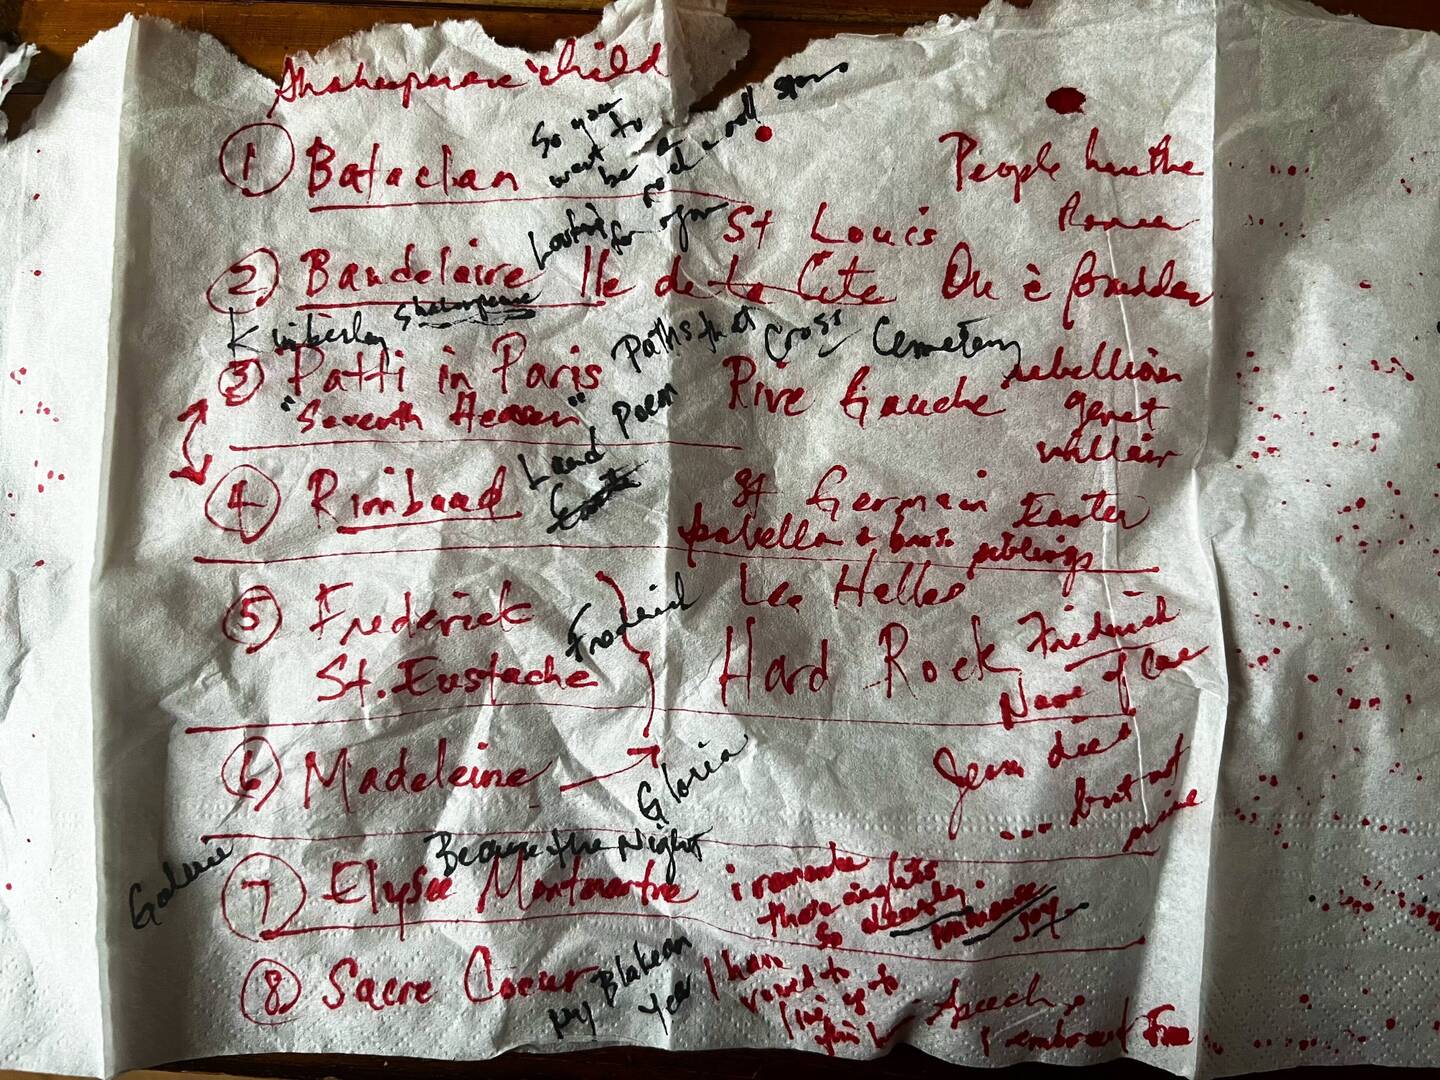 Shakespeare child
① Bataclan
So you
want to
be a
rock n roll star
People have the
Power
Looking
for you
St Louis
② Baudelaire Ile de la Cite
Kimberley Shakespeare
Paths that Cross Cemetery
③ Patti in Paris
"Seventh Heaven"
Land Poem
Rive Gauche
rebellion
genet
④ Rimbaud
St Germain Easter
Isabella & bros. siblings
⑤ Frederick
St. Eustache
Frederick
Les Halles
Hard Rock
Frederick
Name of Love
⑥ Madeleine
Gloria
Jesus died
... but not
mine
Galerie
Because the Night
⑦ Elysée Montmartre
those nights
so clearly
immense
joy
⑧ Sacre Coeur
my Blakean
Year
I have
vowed to
live up to
Speech